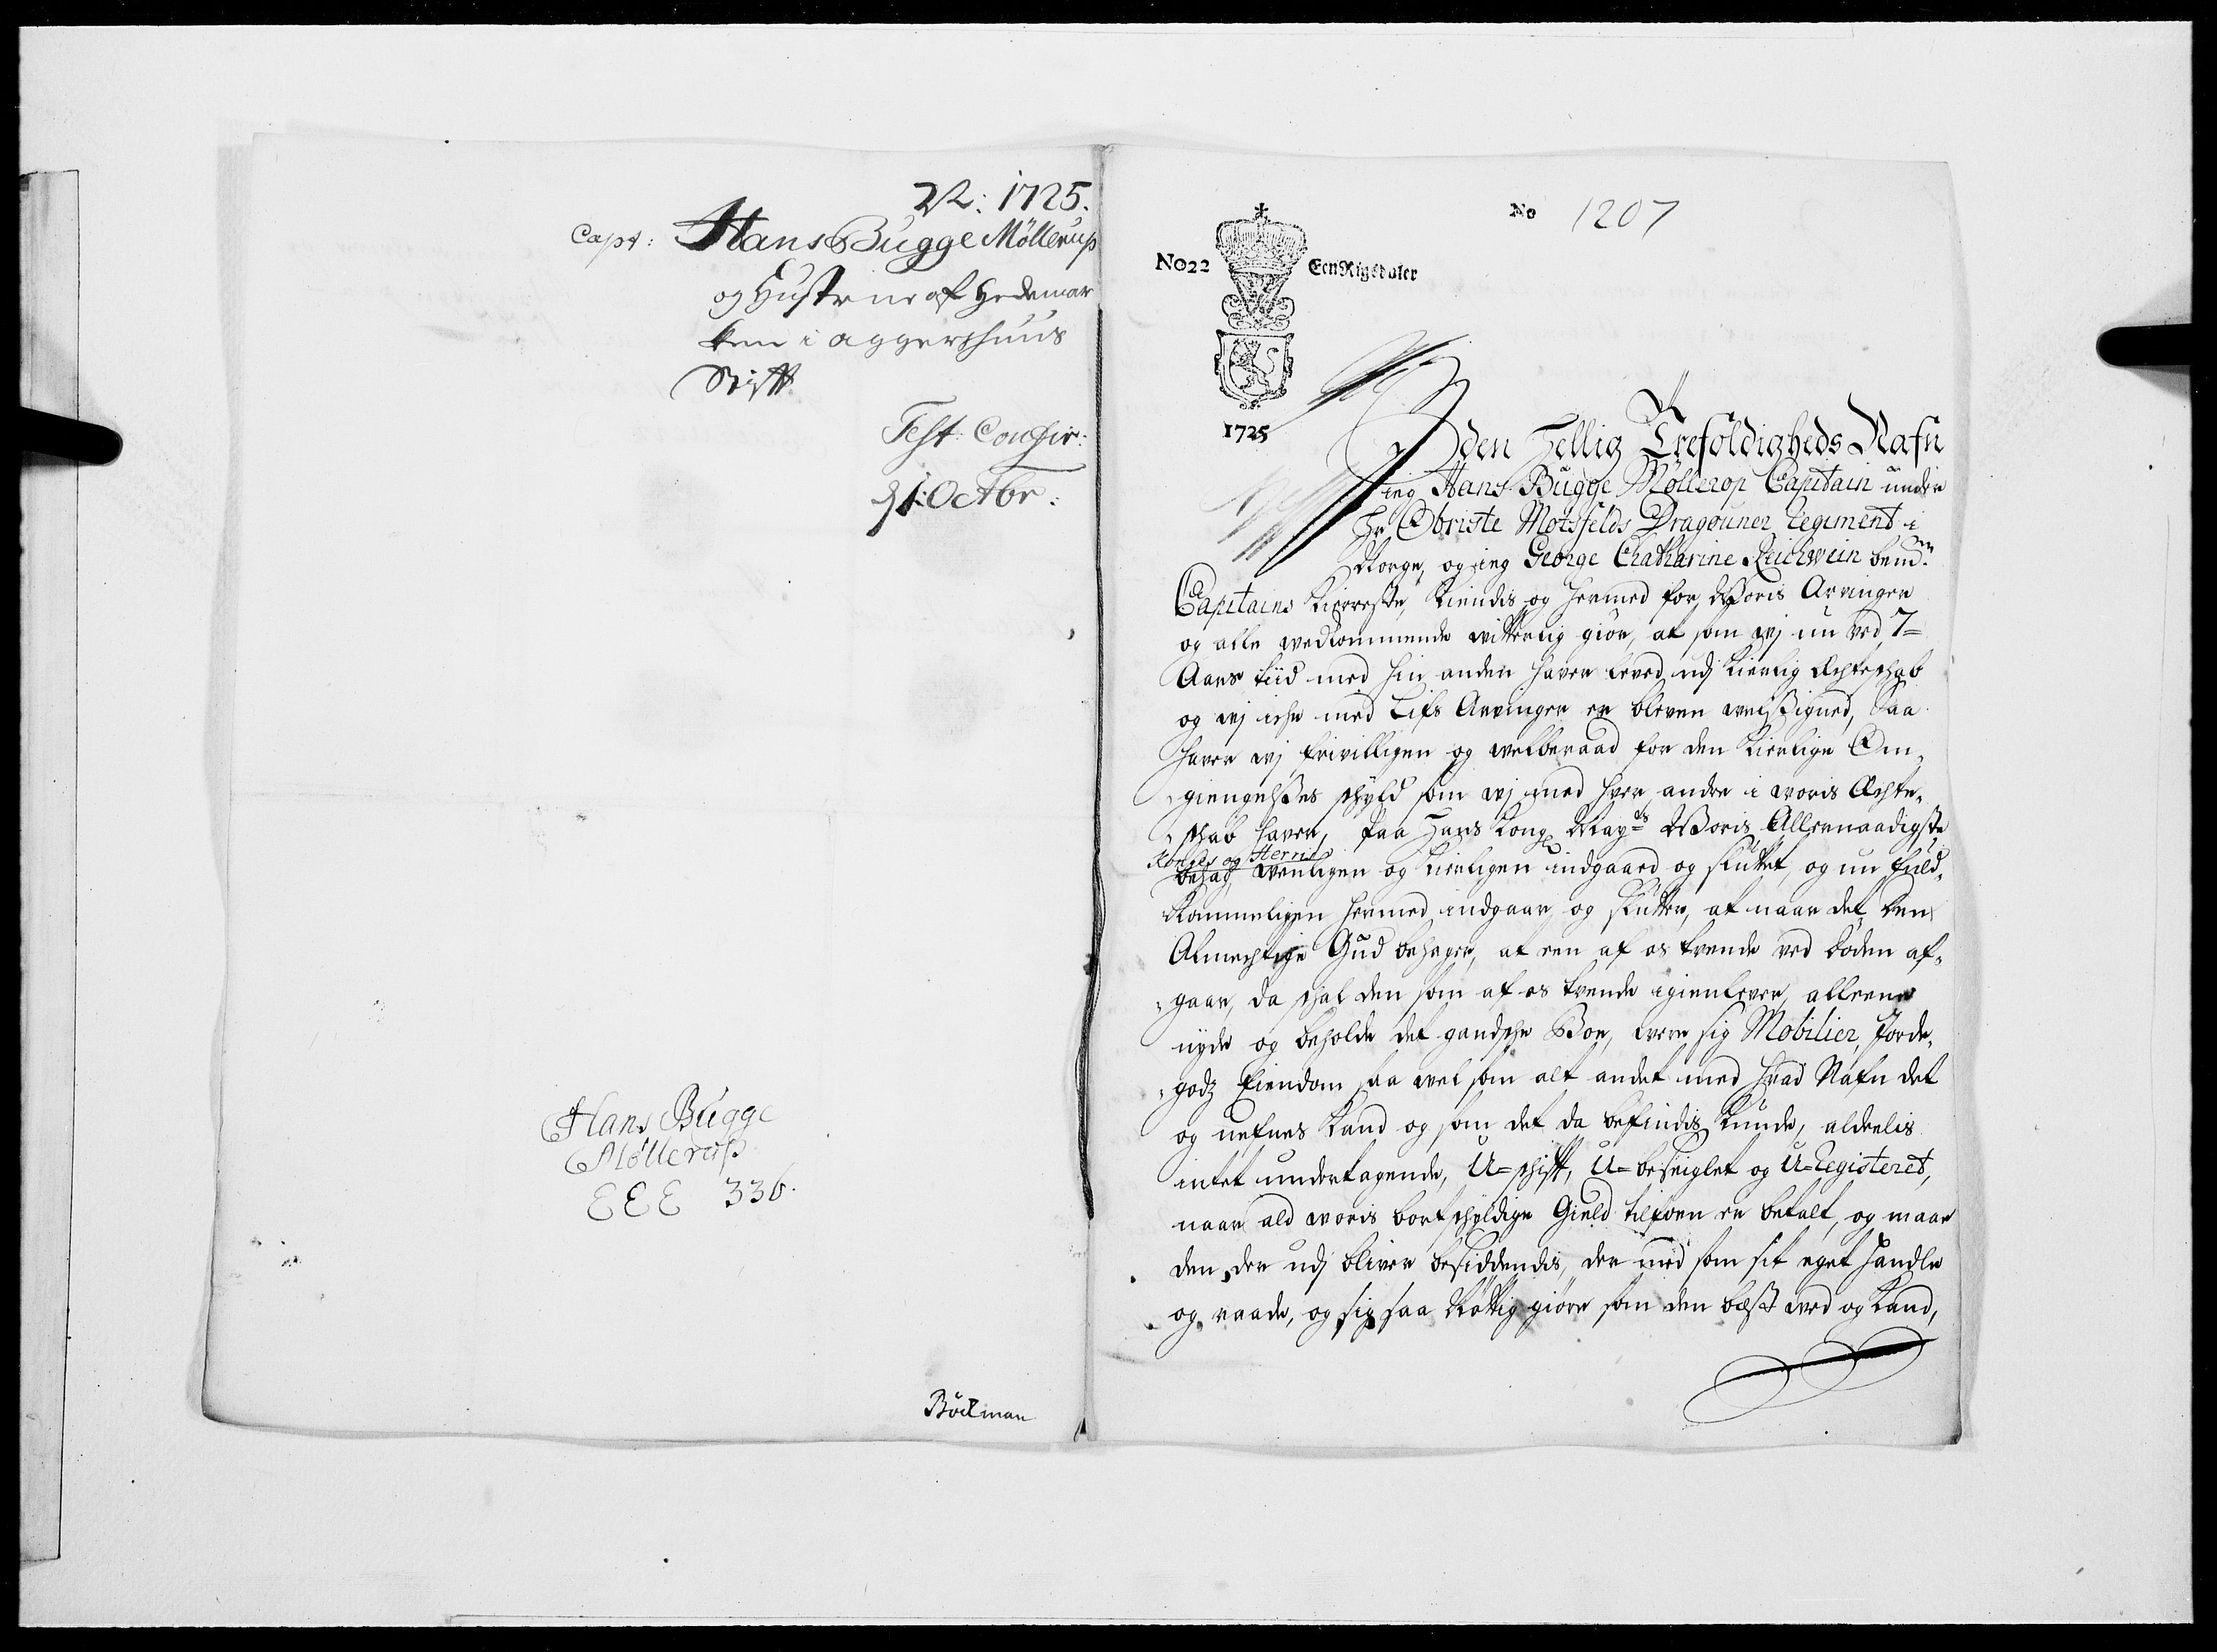 22: 1725.
Capt: Hans Bugge Möllerup
og Hustrue af Hedemar
ken i Aggershuus
Stift
Test: Confir:
Octbr:
Hans Bugge
Möllerup
EEE 336.
Böckman
No 1207
No 22 Een Rigsdaler
1725
I den Hellig Trefoldigheds Nafn
ieg Hans Bugge Møllerop Capitain under
Hr Obriste Motsfelds Dragouner Regiment i
Norge, og ieg George Chatharine Reichwein bemte
Capitains Kierreste, Kiendis og hermed for Woris Arvinger
og alle wedkommende witterlig giør, at som wj nu ved 7=
Aars tiid med hin anden haver leved udj kierlig Ægteschab
og wj iche med Lifs Arvinger er bleven welsigned, Saa
haver wj frivilligen og welberaad for den kierlige Om-
giengelsses schyld som wj med hver andre i woris Ægte-
schab haver, paa Hans Kongl Mayts Woris Allernaadigste
Konges og Herris
behag, wenligen og kierligen indgaaed og sluttet, og nu fuld-
kommeligen hermed indgaar og slutter, at naar det den
Almechtige Gud behager, at een af os tvende ved døden af-
gaar, da schal den som af os tvende igienlever, alleene
nyde og beholde det gandsche Boe, være sig Mobilier, Jorde-
godz Eiendom saa vel som alt andet med hvad Nafn det
og nefnes kand og som det da befindis kunde, aldeelis
intet undertagende, U-schift, U-beseiglet og U-Registeret,
naar ald woris bortschyldige Gield tilforn er betalt, og maae
den der udj bliver besiddendis, der med som sit eget handle
og raade, og sig saa Nøttig giøre som den best ved og kand,